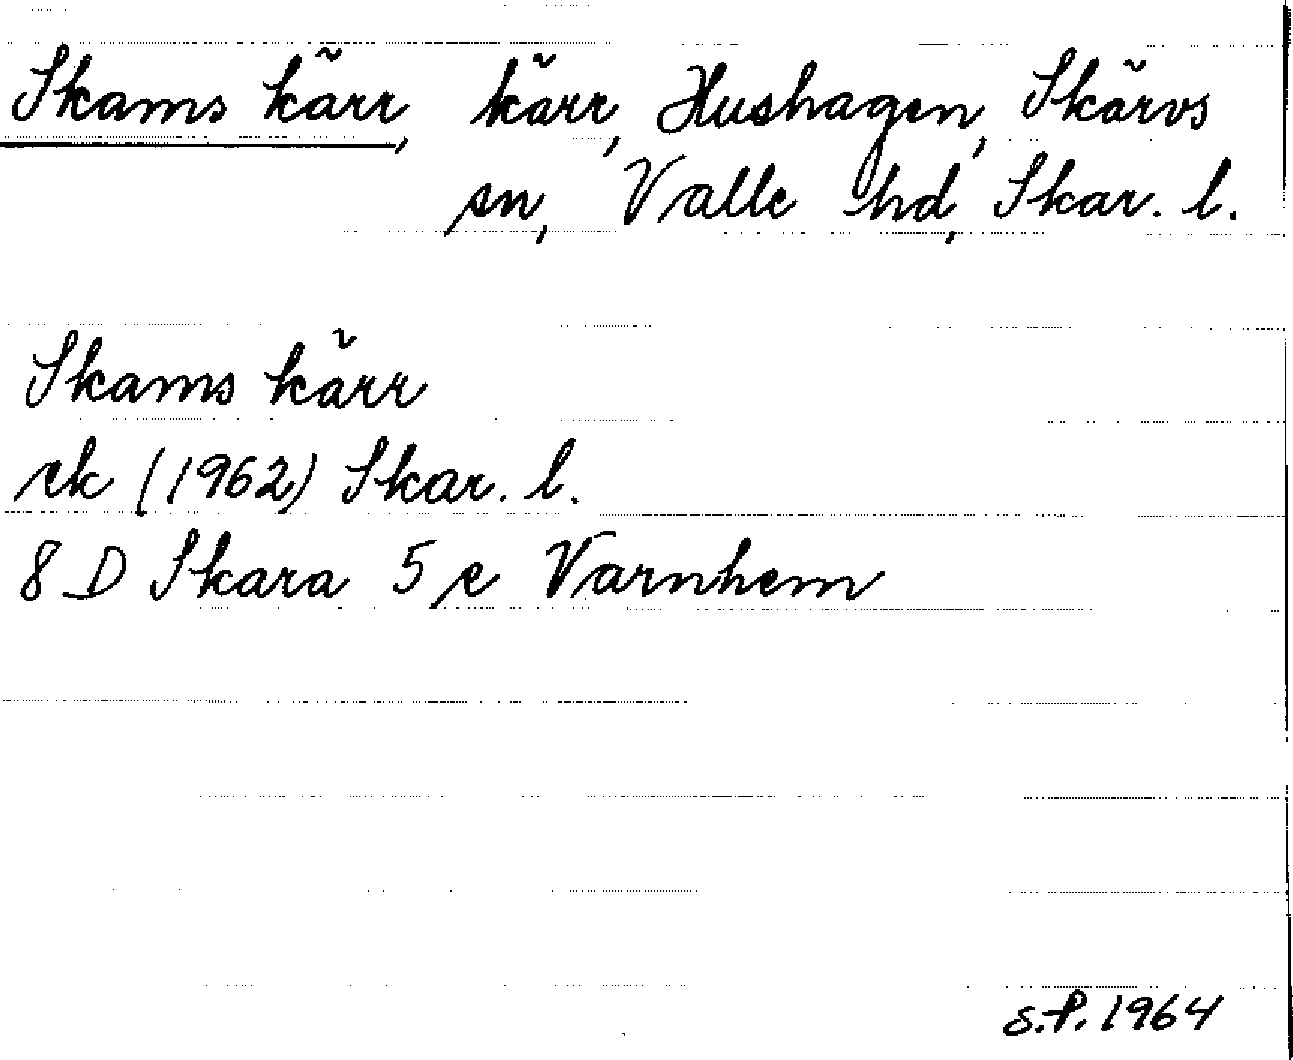 Skams kärr, kärr, Hushagen, Skärvs
sn, Valle hd, Skar. l.
Skams kärr
ek (1962) Skar. l.
8 D Skara 5 e Varnhem
S.F. 1964